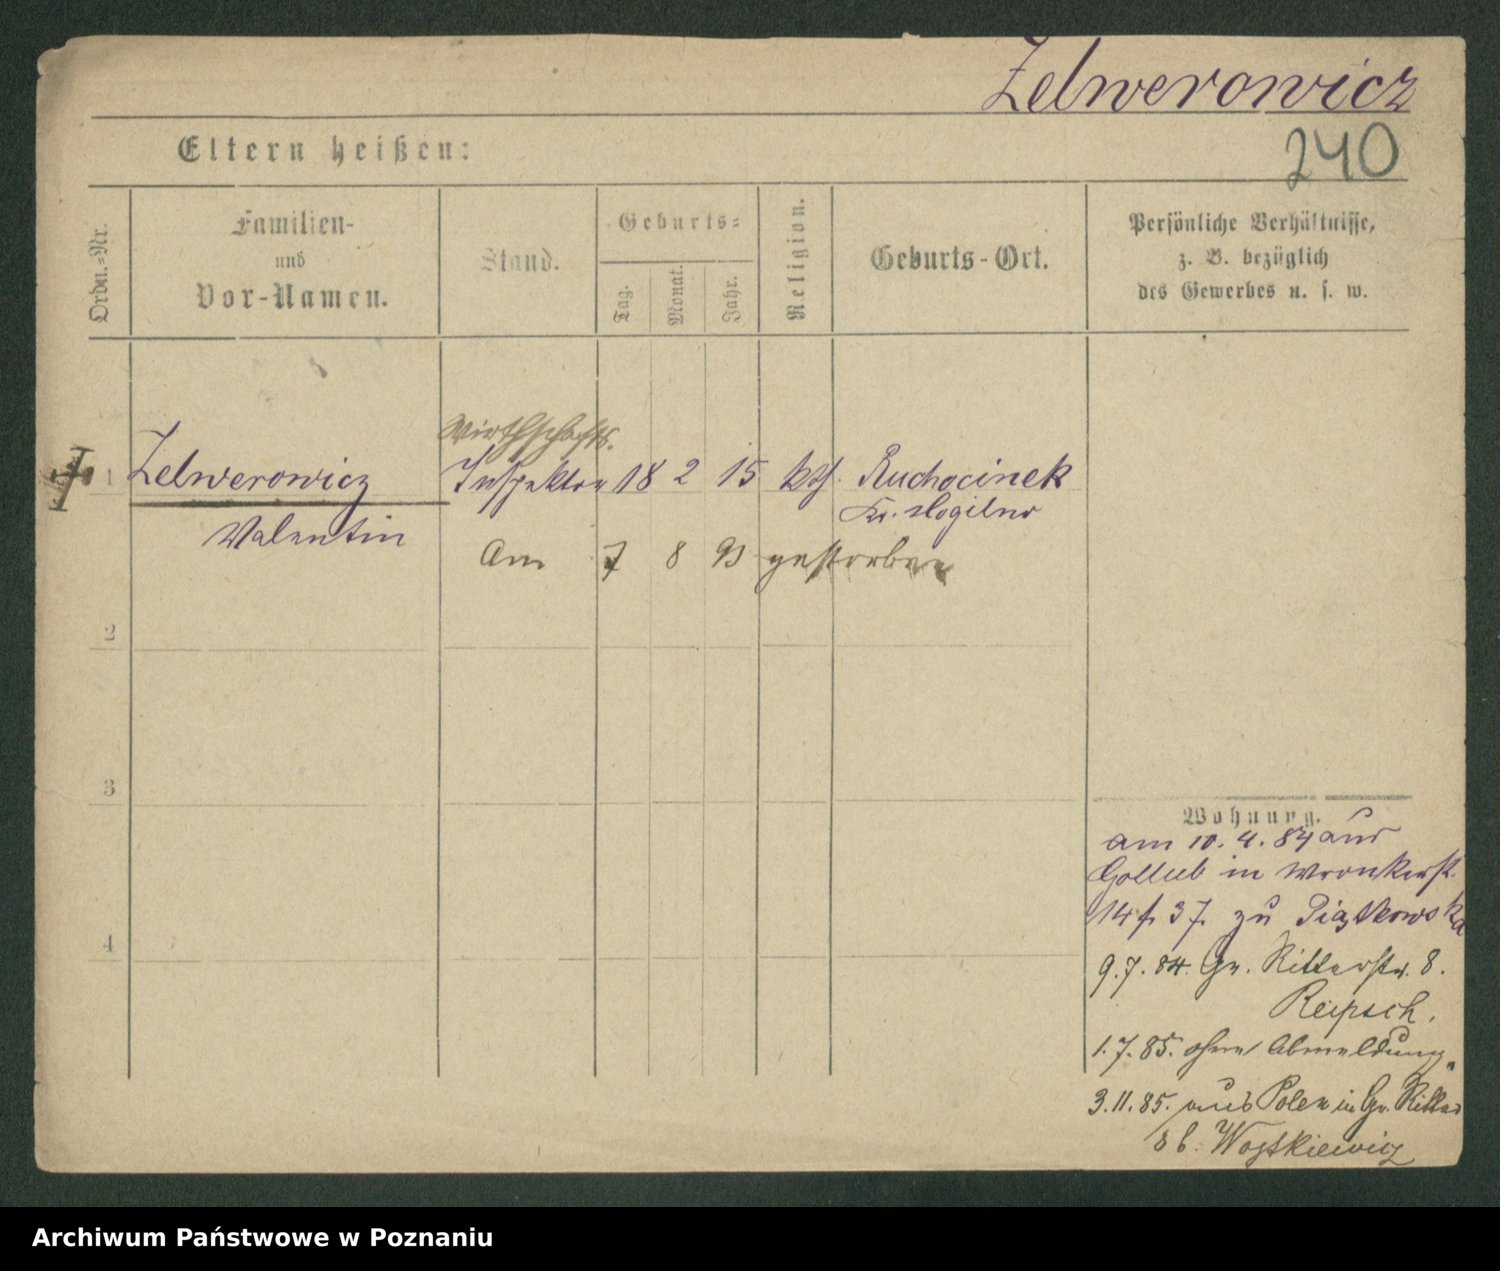 Zelwerowicz
240
Eltern heißen:
Ordn.-Nr.
Familien-
und
Vor-Namen.
Stand.
Geburts-
Tag.
Monat.
Jahr.
Religion.
Geburts-Ort.
Persönliche Verhältnisse,
z. B. bezüglich
des Gewerbes u. s. w.
Wirthschafts.
1 Zelwerowicz Inspektor 18 2 15 kth. Ruchocinek
Valentin Kr. Mogilno
am 7 8 93 gestorben
2
3
4
Wohnung.
am 10. 4. 84 aus
Gollub in Wronkerst.
14 f. 37. zu Piątkowska
9. 7. 84. Gr. Ritterstr. 8.
Reipsch.
1. 7. 85. ohne Abmeldung.
3. 11. 85. aus Polen in Gr. Ritter
8 b. Woytkiewicz
Archiwum Państwowe w Poznaniu